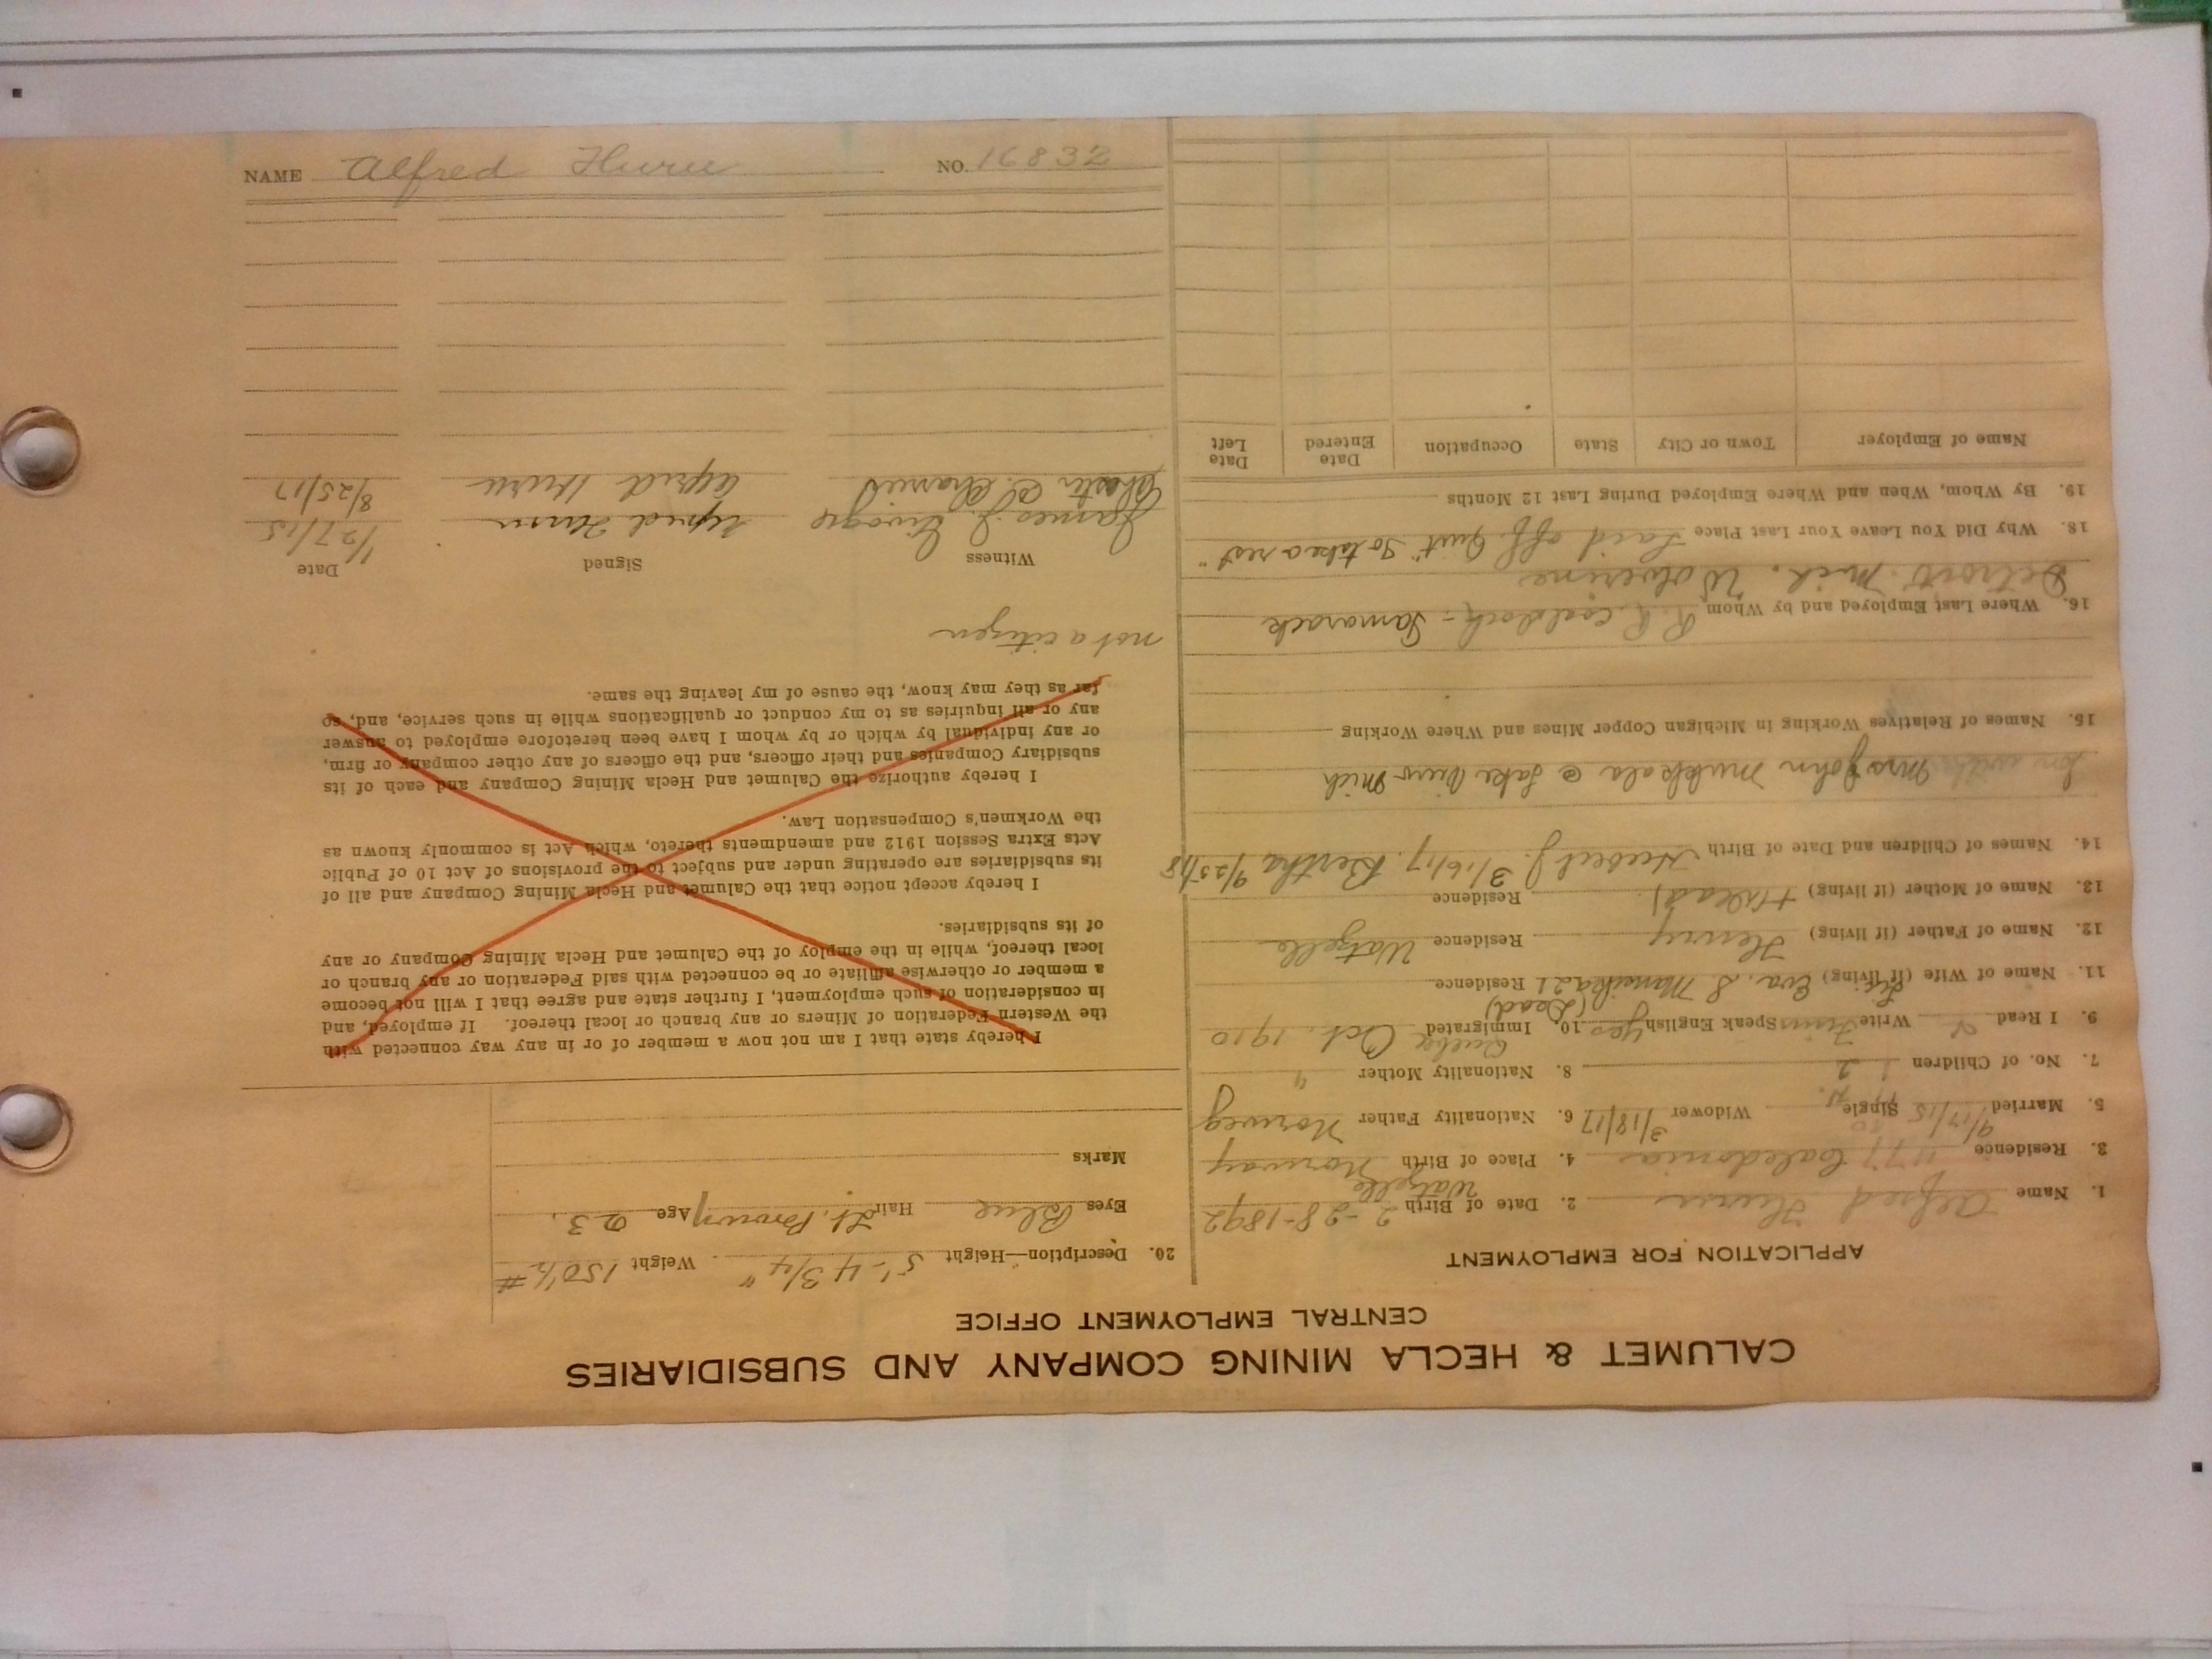 CALUMET & HECLA MINING COMPANY AND SUBSIDIARIES
CENTRAL EMPLOYMENT OFFICE
APPLICATION FOR EMPLOYMENT
1. Name Alfred Huru 2. Date of Birth 2-28-1892
3. Residence Caledonia 4. Place of Birth Norway
5. Married 9/17/15 Single Widower 3/18/17 6. Nationality Father Norweg
7. No. of Children 2 8. Nationality Mother "
9. I Read Write Finn Speak English yes 10. Immigrated Oct. 1910
(Dead)
11. Name of Wife (if living) Eva. S. Residence
12. Name of Father (if living) Henry Residence
13. Name of Mother (if living) (dead) Residence
14. Names of Children and Date of Birth J. 3/16/17. Bertha 9/25/18
Mrs John @ Lake Mich
15. Names of Relatives Working in Michigan Copper Mines and Where Working
16. Where Last Employed and by Whom R.R. - Tamarack
Detroit Mich. Wolverine
18. Why Did You Leave Your Last Place Laid off. Quit "To take a rest"
19. By Whom, When and Where Employed During Last 12 Months
Name of Employer Town or City State Occupation Date Entered Date Left
20. Description—Height 5'-4 3/4" Weight 150 1/2 #
Eyes Blue Hair Lt. Brown Age 23.
Marks
I hereby state that I am not now a member of or in any way connected with
the Western Federation of Miners or any branch or local thereof. If employed, and
in consideration of such employment, I further state and agree that I will not become
a member or otherwise affiliate or be connected with said Federation or any branch or
local thereof, while in the employ of the Calumet and Hecla Mining Company or any
of its subsidiaries.
I hereby accept notice that the Calumet and Hecla Mining Company and all of
its subsidiaries are operating under and subject to the provisions of Act 10 of Public
Acts Extra Session 1912 and amendments thereto, which Act is commonly known as
the Workmen's Compensation Law.
I hereby authorize the Calumet and Hecla Mining Company and each of its
subsidiary Companies and their officers, and the officers of any other company or firm,
or any individual by which or by whom I have been heretofore employed to answer
any or all inquiries as to my conduct or qualifications while in such service, and, so
far as they may know, the cause of my leaving the same.
not a citizen
Witness Signed Date
James J. Alfred Huru 1/27/15
Chester Alfred Huru 8/25/17
NAME Alfred Huru NO. 16832